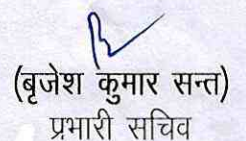 (बृजेश कुमार सन्त)
प्रभारी सचिव